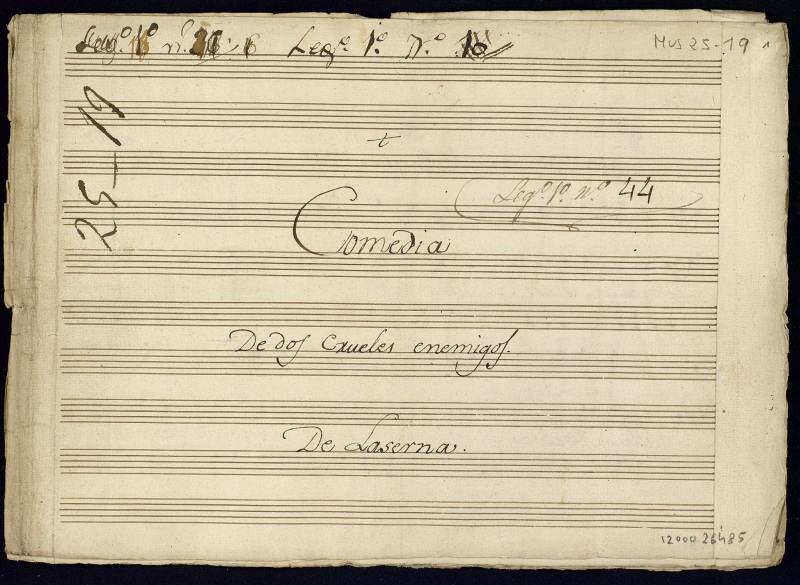 Leg.º 1º n.º 6 Leg.º 1.º N.º 16
Mus 25-19
25-19
t
Leg.º 1.º n.º 44
Comedia
De dos Crueles enemigos.
De Laserna.
1200026485